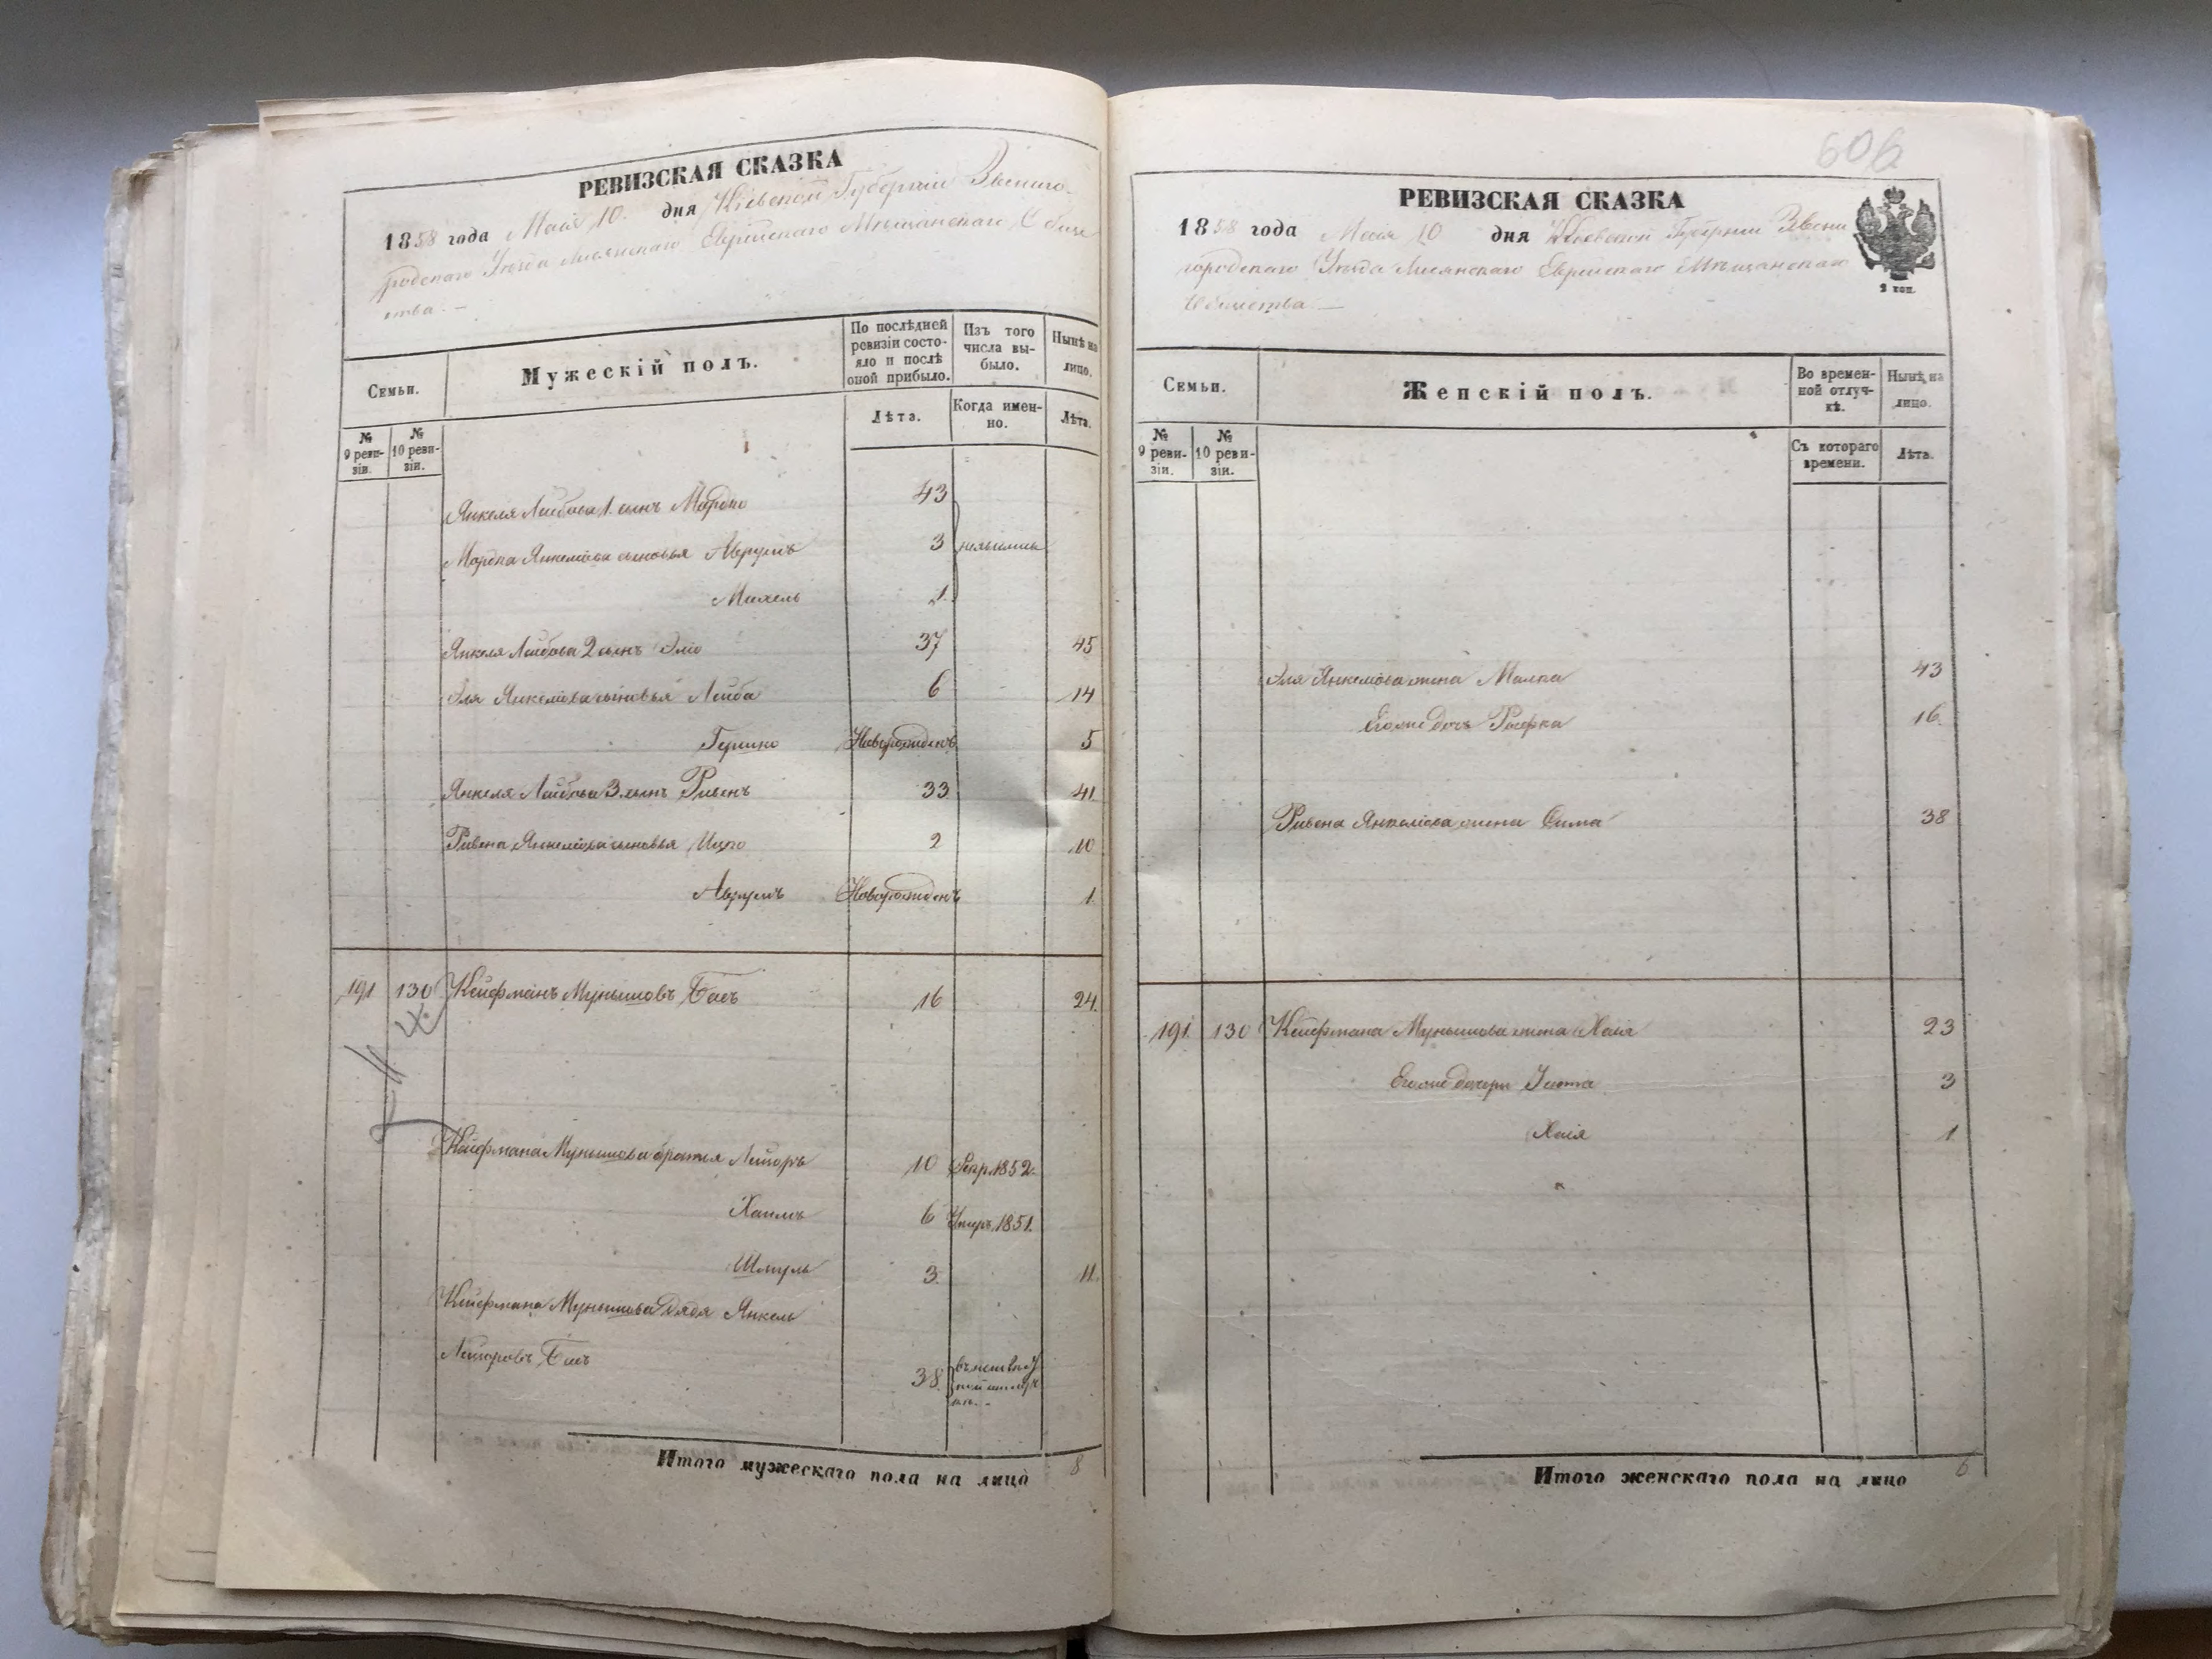 РЕВИЗСКАЯ СКАЗКА
1858 года Маія 10 дня Кіевской Губерніи Звениго-
родскаго Уѣзда Лисянскаго Еврейскаго Мѣщанскаго Обще
ства. —
Семьи.
Мужескій полъ.
По послѣдней ревизіи состояло и послѣ оной прибыло.
Изъ того числа вы-было.
Нынѣ на лицо.
Лѣта.
Когда имен-но.
Лѣта.
№ 9 реви-зіи.
№ 10 реви-зіи.
Янкеля Лейбова 1. сынъ Мордко 43
Мордка Янкеліова сыновья Аврумъ 3
Михель 1
Янкеля Лейбова 2 сынъ Эліо 37 45
Эля Янкеліова сыновья Лейба 6 14
Гершко Новорожденъ 5
Янкеля Лейбова 3 сынъ Рывенъ 33 41
Рывена Янкеліова сыновья Ицко 2 10
Аврумъ Новорожденъ 1
191 130 Кейфманъ Мунышовъ 16 24
Кейфмана Мунышова братья Лейзоръ 10 Рекр. 1852.
Хаимъ 6 Умеръ 1851.
Шмуль 3 11.
Кейфмана Мунышова дядя Янкель
Лейзоровъ 38
Итого мужескаго пола на лицо 8
606
РЕВИЗСКАЯ СКАЗКА
1858 года Маія 10 дня Кіевской Губерніи Звени
городскаго Уѣзда Лисянскаго Еврейскаго Мѣщанскаго
Общества —
2 коп.
Семьи.
Женскій полъ.
Во времен-ной отлуч-кѣ.
Нынѣ на лицо.
Съ котораго времени.
Лѣта.
№ 9 реви-зіи.
№ 10 реви-зіи.
Эля Янкеліова жена Малка 43
Его же дочь Рыфка 16.
Рывена Янкеліова жена Сима 38
191. 130 Кейфмана Мунышова жена Хаія 23
Его же дочери 3
Хаія 1
Итого женскаго пола на лицо 6